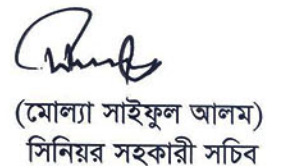 (মোল্যা সাইফুল আলম)
সিনিয়র সহকারী সচিব